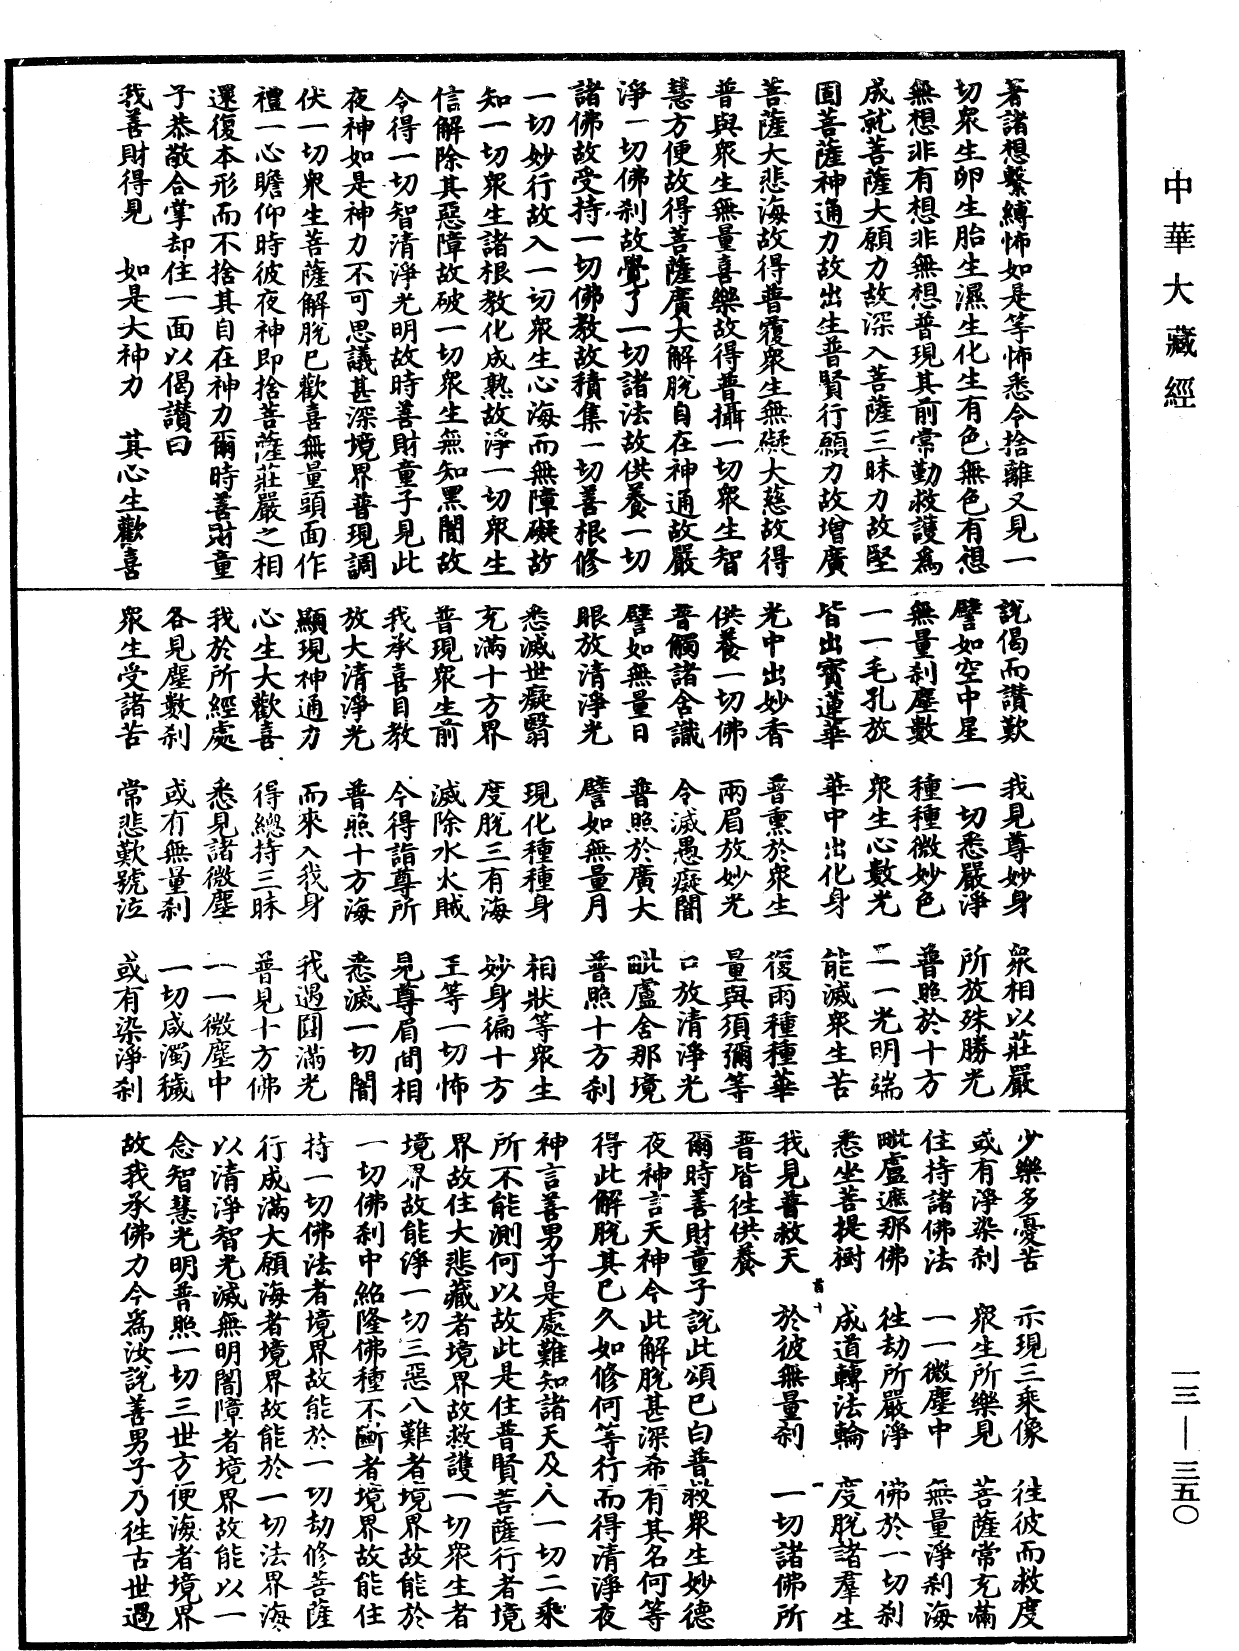 中華大藏經
著諸想繫縛怖如是等怖悉令捨離又見一
切衆生卵生胎生濕生化生有色無色有想
無想非有想非無想普現其前常勤救護爲
成就菩薩大願力故深入菩薩三昧力故堅
固菩薩神通力故出生普賢行願力故增廣
菩薩大悲海故得普覆衆生無礙大慈故得
普與衆生無量喜樂故得普攝一切衆生智
慧方便故得菩薩廣大解脫自在神通故嚴
淨一切佛刹故覺了一切諸法故供養一切
諸佛故受持一切佛教故積集一切善根修
一切妙行故入一切衆生心海而無障礙故
知一切衆生諸根教化成熟故淨一切衆生
信解除其惡障故破一切衆生無知黑闇故
令得一切智清淨光明故時善財童子見此
夜神如是神力不可思議甚深境界普現調
伏一切衆生菩薩解脫已歡喜無量頭面作
禮一心瞻仰時彼夜神即捨菩薩莊嚴之相
還復本形而不捨其自在神力爾時善財童
子恭敬合掌却住一面以偈讚曰
我善財得見　如是大神力　其心生歡喜
說偈而讚歎　我見尊妙身　衆相以莊嚴
譬如空中星　一切悉嚴淨　所放殊勝光
無量刹塵數　種種微妙色　普照於十方
一一毛孔放　衆生心數光　一一光明端
皆出寶蓮華　華中出化身　能滅衆生苦
光中出妙香　普熏於衆生　復雨種種華
供養一切佛　兩眉放妙光　量與須彌等
普觸諸含識　令滅愚癡闇　口放清淨光
譬如無量日　普照於廣大　毗盧舍那境
眼放清淨光　譬如無量月　普照十方刹
悉滅世癡翳　現化種種身　相狀等衆生
充滿十方界　度脫三有海　妙身徧十方
普現衆生前　滅除水火賊　王等一切怖
我承喜目教　今得詣尊所　見尊眉間相
放大清淨光　普照十方海　悉滅一切闇
顯現神通力　而來入我身　我遇圓滿光
心生大歡喜　得總持三昧　普見十方佛
我於所經處　悉見諸微塵　一一微塵中
各見塵數刹　或有無量刹　一切咸濁穢
衆生受諸苦　常悲歎號泣　或有染淨刹
少樂多憂苦　示現三乘像　往彼而救度
或有淨染刹　衆生所樂見　菩薩常充滿
住持諸佛法　一一微塵中　無量淨刹海
毗盧遮那佛　往劫所嚴淨　佛於一切刹
悉坐菩提樹　成道轉法輪　度脫諸羣生
我見普救天　於彼無量刹　一切諸佛所
普皆往供養
爾時善財童子說此頌已白普救衆生妙德
夜神言天神今此解脫甚深希有其名何等
得此解脫其已久如修何等行而得清淨夜
神言善男子是處難知諸天及人一切二乘
所不能測何以故此是住普賢菩薩行者境
界故住大悲藏者境界故救護一切衆生者
境界故能淨一切三惡八難者境界故能於
一切佛刹中紹隆佛種不斷者境界故能住
持一切佛法者境界故能於一切劫修菩薩
行成滿大願海者境界故能於一切法界海
以清淨智光滅無明闇障者境界故能以一
念智慧光明普照一切三世方便海者境界
故我承佛力今爲汝說善男子乃往古世過
一三—三五〇